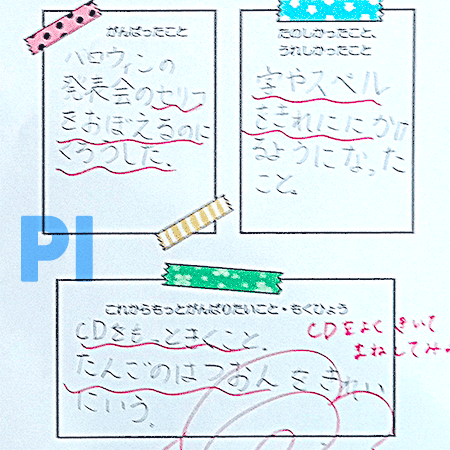 がんばったこと
ハロウィンの
発表会のセリフ
をおぼえるのに
くろうした。
たのしかったこと、
うれしかったこと
字やスペル
をきれいにかけ
るようになった
こと。
PI
これからもっとがんばりたいこと・もくひょう
CDをもっときくこと。
たんごのはつおんをきれい
にいう。
CDをよくきいて
まねしてみ